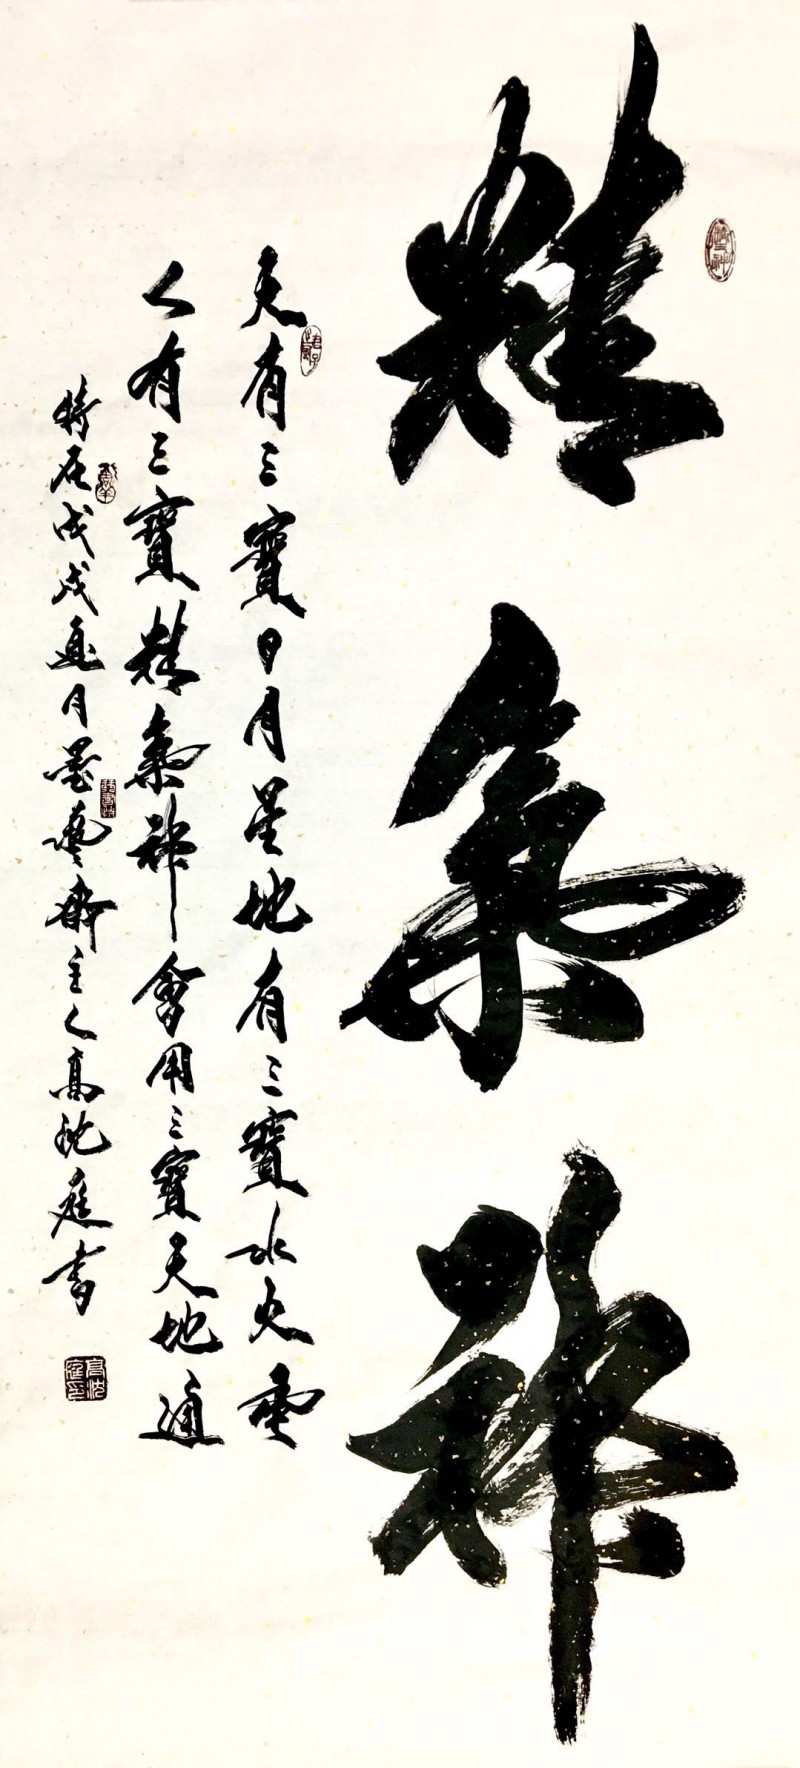 精氣神
天有三寶日月星地有三寶水火
人有三寶精氣神會用三寶天地通
時在戊戌夏月墨藝齋主人高沈庭書
高沈庭印